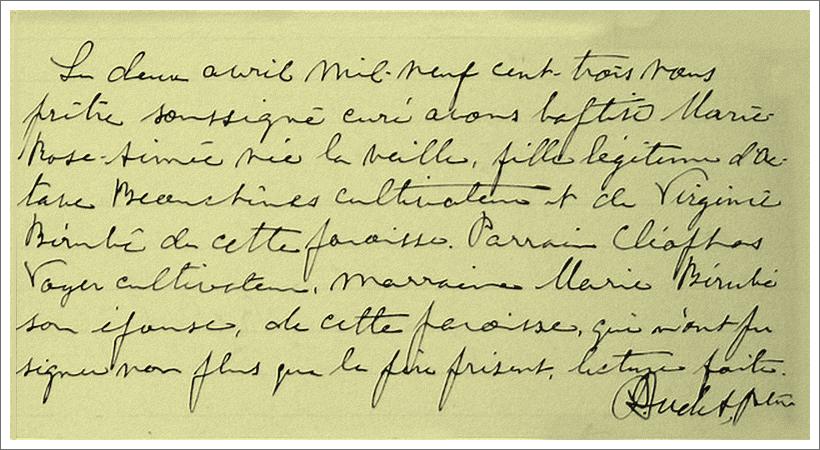 Le deux avril mil-neuf cent-trois nous
prêtre soussigné curé avons baptisé Marie-
Rose-Aimée née la veille, fille légitime d'Oc-
tave Beauchênes cultivateur et de Virginie
Bérubé de cette paroisse. Parrain Cléophas
Voyer cultivateur, marraine Marie Bérubé
son épouse, de cette paroisse, qui n'ont pu
signer non plus que le père présent, lecture faite.
ptre